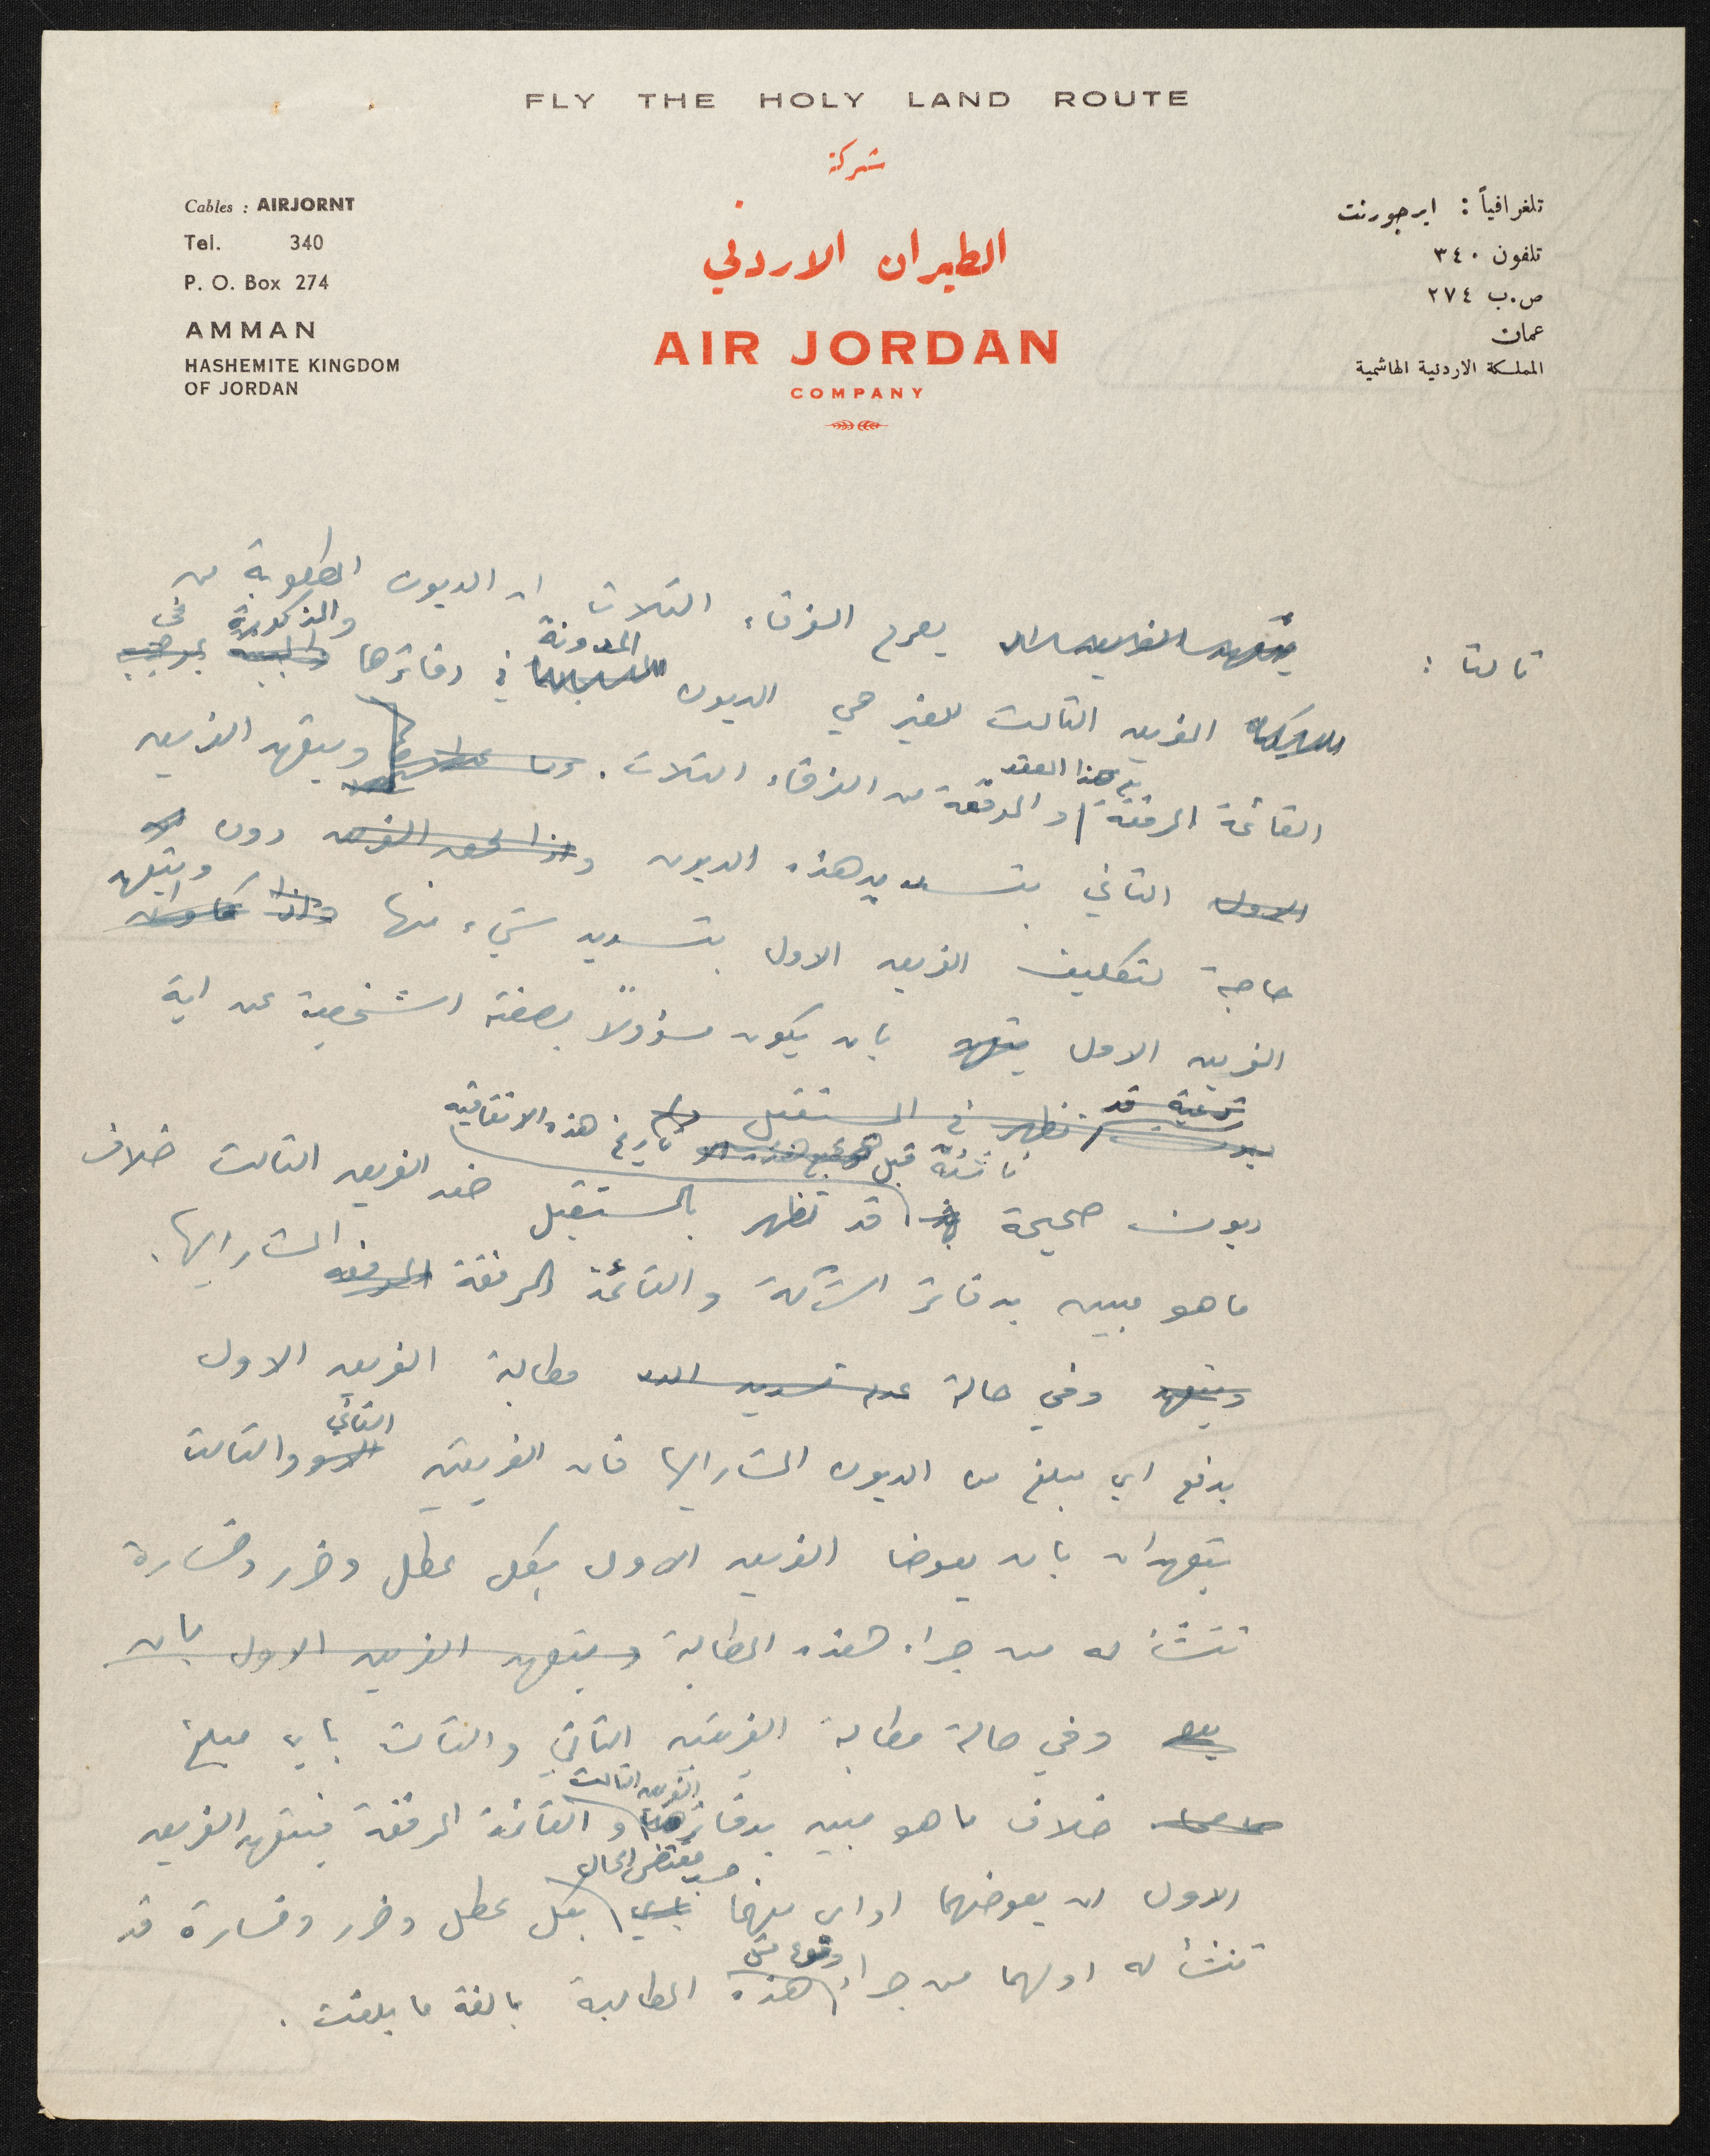 FLY THE HOLY LAND ROUTE
شركة
الطيران الاردني
AIR JORDAN
COMPANY
Cables : AIRJORNT
Tel. 340
P. O. Box 274
AMMAN
HASHEMITE KINGDOM
OF JORDAN
تلغرافياً : ايرجورنت
تلفون ٣٤٠
ص.ب ٢٧٤
عمان
المملكة الاردنية الهاشمية
ثالثا : يصرح الفرقاء الثلاث ان الديون المطلوبة من
المدونة والمذكورة في
الفريق الثالث للغير هي الديون في دفاترها
مع هذا العقد
القائمة المرفقة والموقعة من الفرقاء الثلاث . ويتعهد الفريق
الثاني بتسديد هذه الديون دون
ويتعهد
حاجة لتكليف الفريق الاول بتسديد شيء منها
الفريق الاول بان يكون مسؤولاً بصفته الشخصية عن اية
ناشئة قبل تاريخ هذه الاتفاقية
ديون صحيحة قد تظهر بالمستقبل ضد الفريق الثالث خلاف
ما هو مبين بدفاتر الشركة والقائمة المرفقة المشار اليها .
وفي حالة مطالبة الفريق الاول
الثاني
بدفع اي مبلغ من الديون المشار اليها فان الفريقين والثالث
يتعهدان بان يعوضا الفريق الاول بكل عطل وضرر وخسارة
تنشأ له من جراء هذه المطالبة ويتعهد الفريق الاول بان
وفي حالة مطالبة الفريقين الثاني والثالث باي مبلغ
الفريق الثالث
خلاف ما هو مبين بدفاتر والقائمة المرفقة فيتعهد الفريق
حسب مقتضى الحال
الاول ان يعوضهما او اي منهما بكل عطل وضرر وخسارة قد
وقوع مثل
تنشأ له او لهما من جراء هذه المطالبة بالغة ما بلغت .